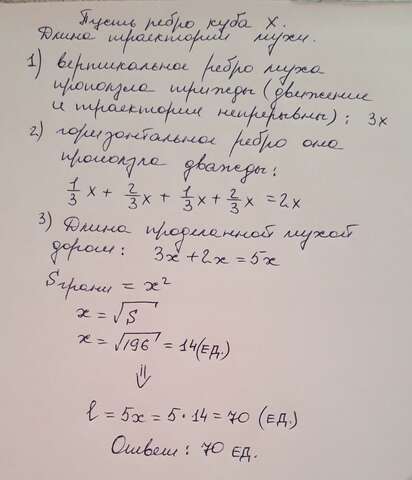 Пусть ребро куба x.
Длина траектории мухи.
1) вертикальное ребро муха
проползла трижды (движение
и траектории непрерывны): 3x
2) горизонтальное ребро она
проползла дважды:
1/3 x + 2/3 x + 1/3 x + 2/3 x = 2x
3) Длина проделанной мухой
дороги: 3x + 2x = 5x
S грани = x²
x = √S
x = √196 = 14 (ЕД.)
⇓
l = 5x = 5 · 14 = 70 (ЕД.)
Ответ: 70 ЕД.